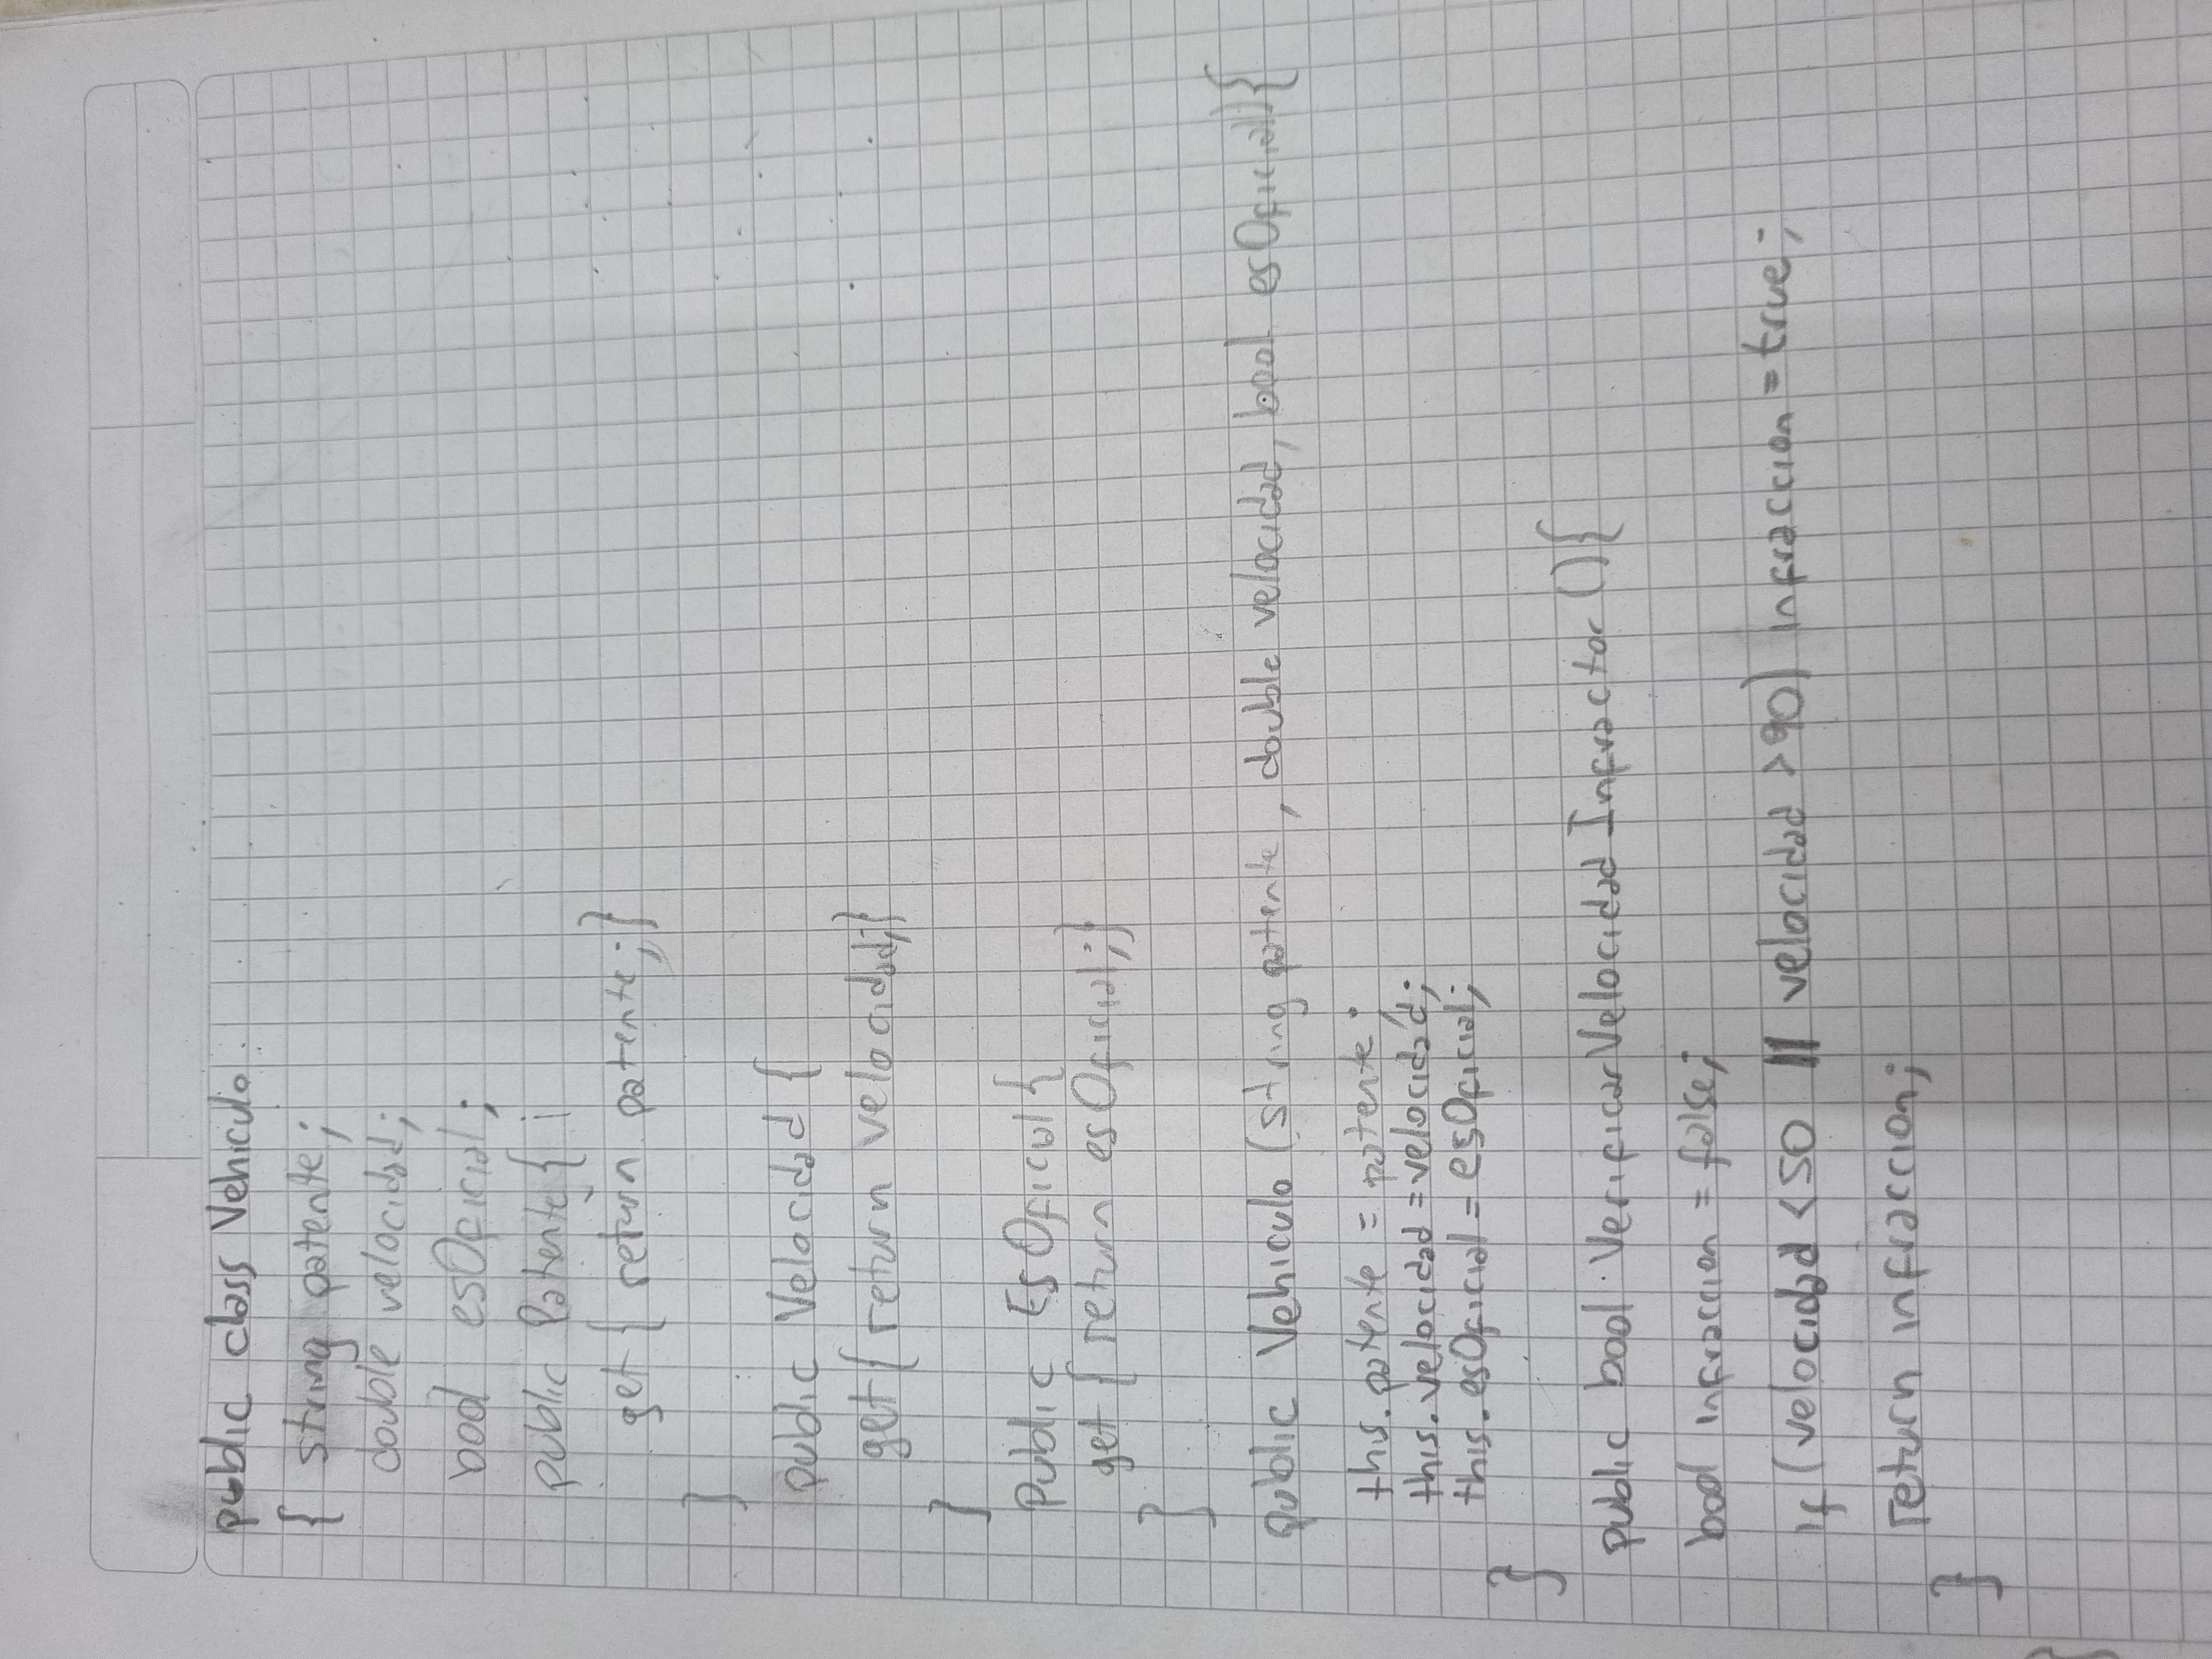 public class Vehiculo
{ string patente;
double velocidad;
bool esOficial;
public Patente {
get { return patente; }
}
public Velocidad {
get { return velocidad; }
}
Public EsOficial {
get { return esOficial; }
}
public Vehiculo (string patente, double velocidad, bool esOficial) {
this.patente = patente;
this.velocidad = velocidad;
this.esOficial = esOficial;
}
public bool VerificarVelocidadInfractor () {
bool infraccion = false;
if (velocidad < 50 || velocidad > 90) infraccion = true;
return infraccion;
}
}